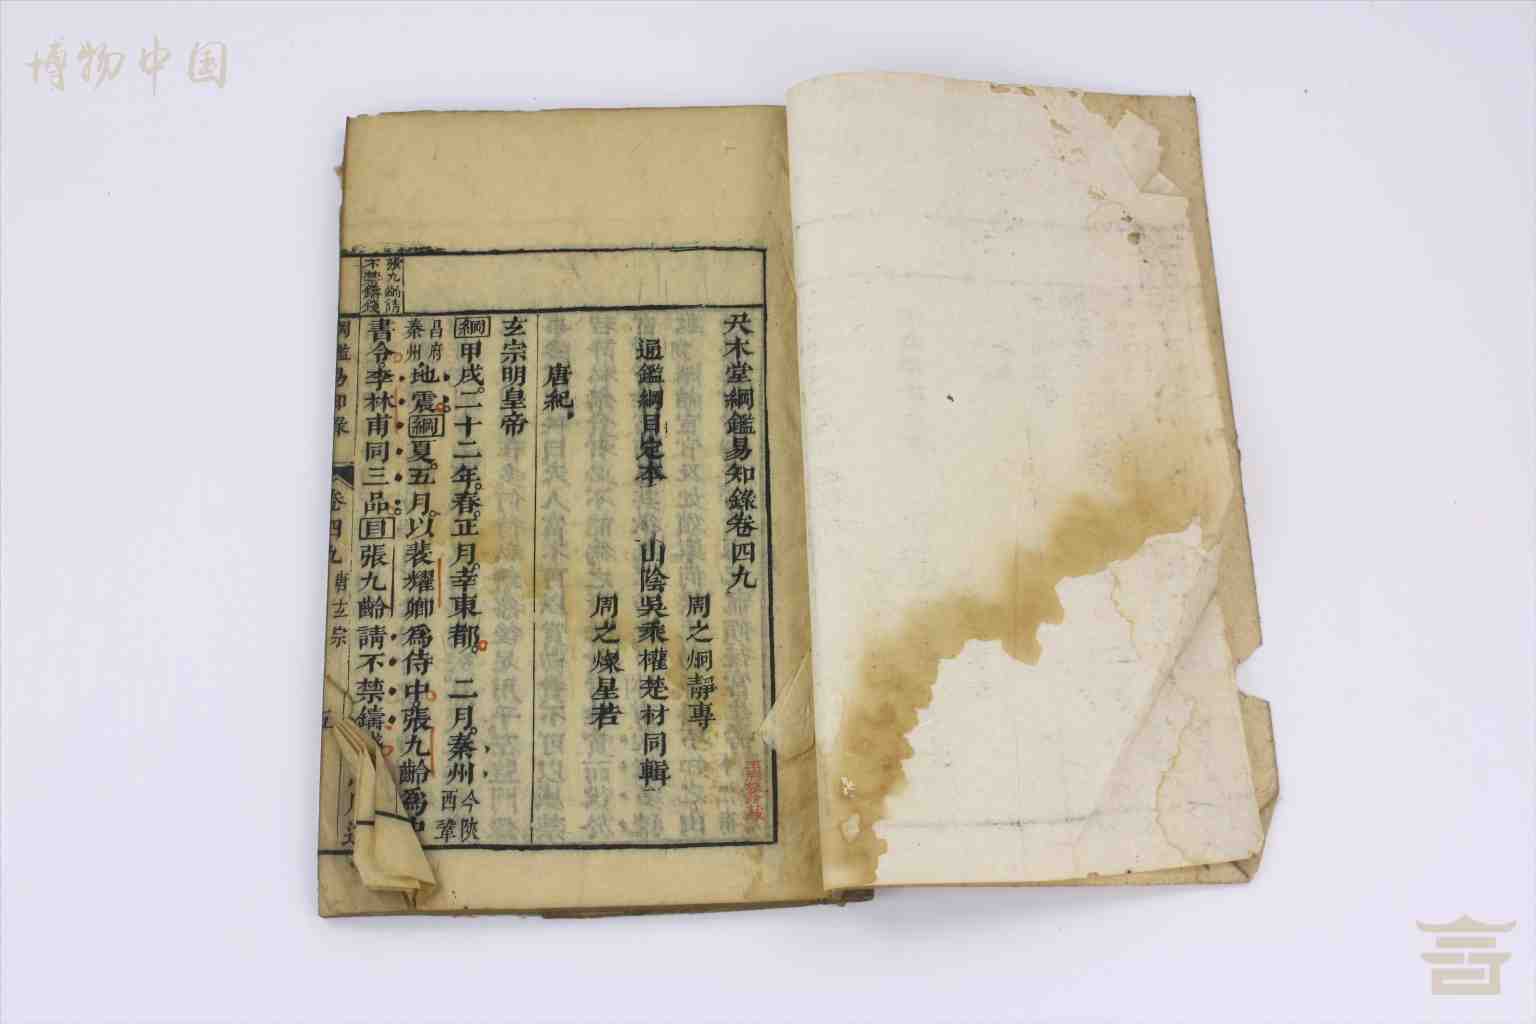 博物中国
尺木堂綱鑑易知錄卷四九
周之炯靜專
通鑑綱目定本 山陰吳乘權楚材同輯
周之燦星若
唐紀
玄宗明皇帝
綱甲戌二十二年春正月幸東都 二月秦州今陝西鞏
昌府秦州地震綱夏五月以裴耀卿為侍中張九齡為中
書令李林甫同三品目張九齡請不禁鑄
張九齡請
不禁鑄錢
綱鑑易知錄 卷四九 唐玄宗